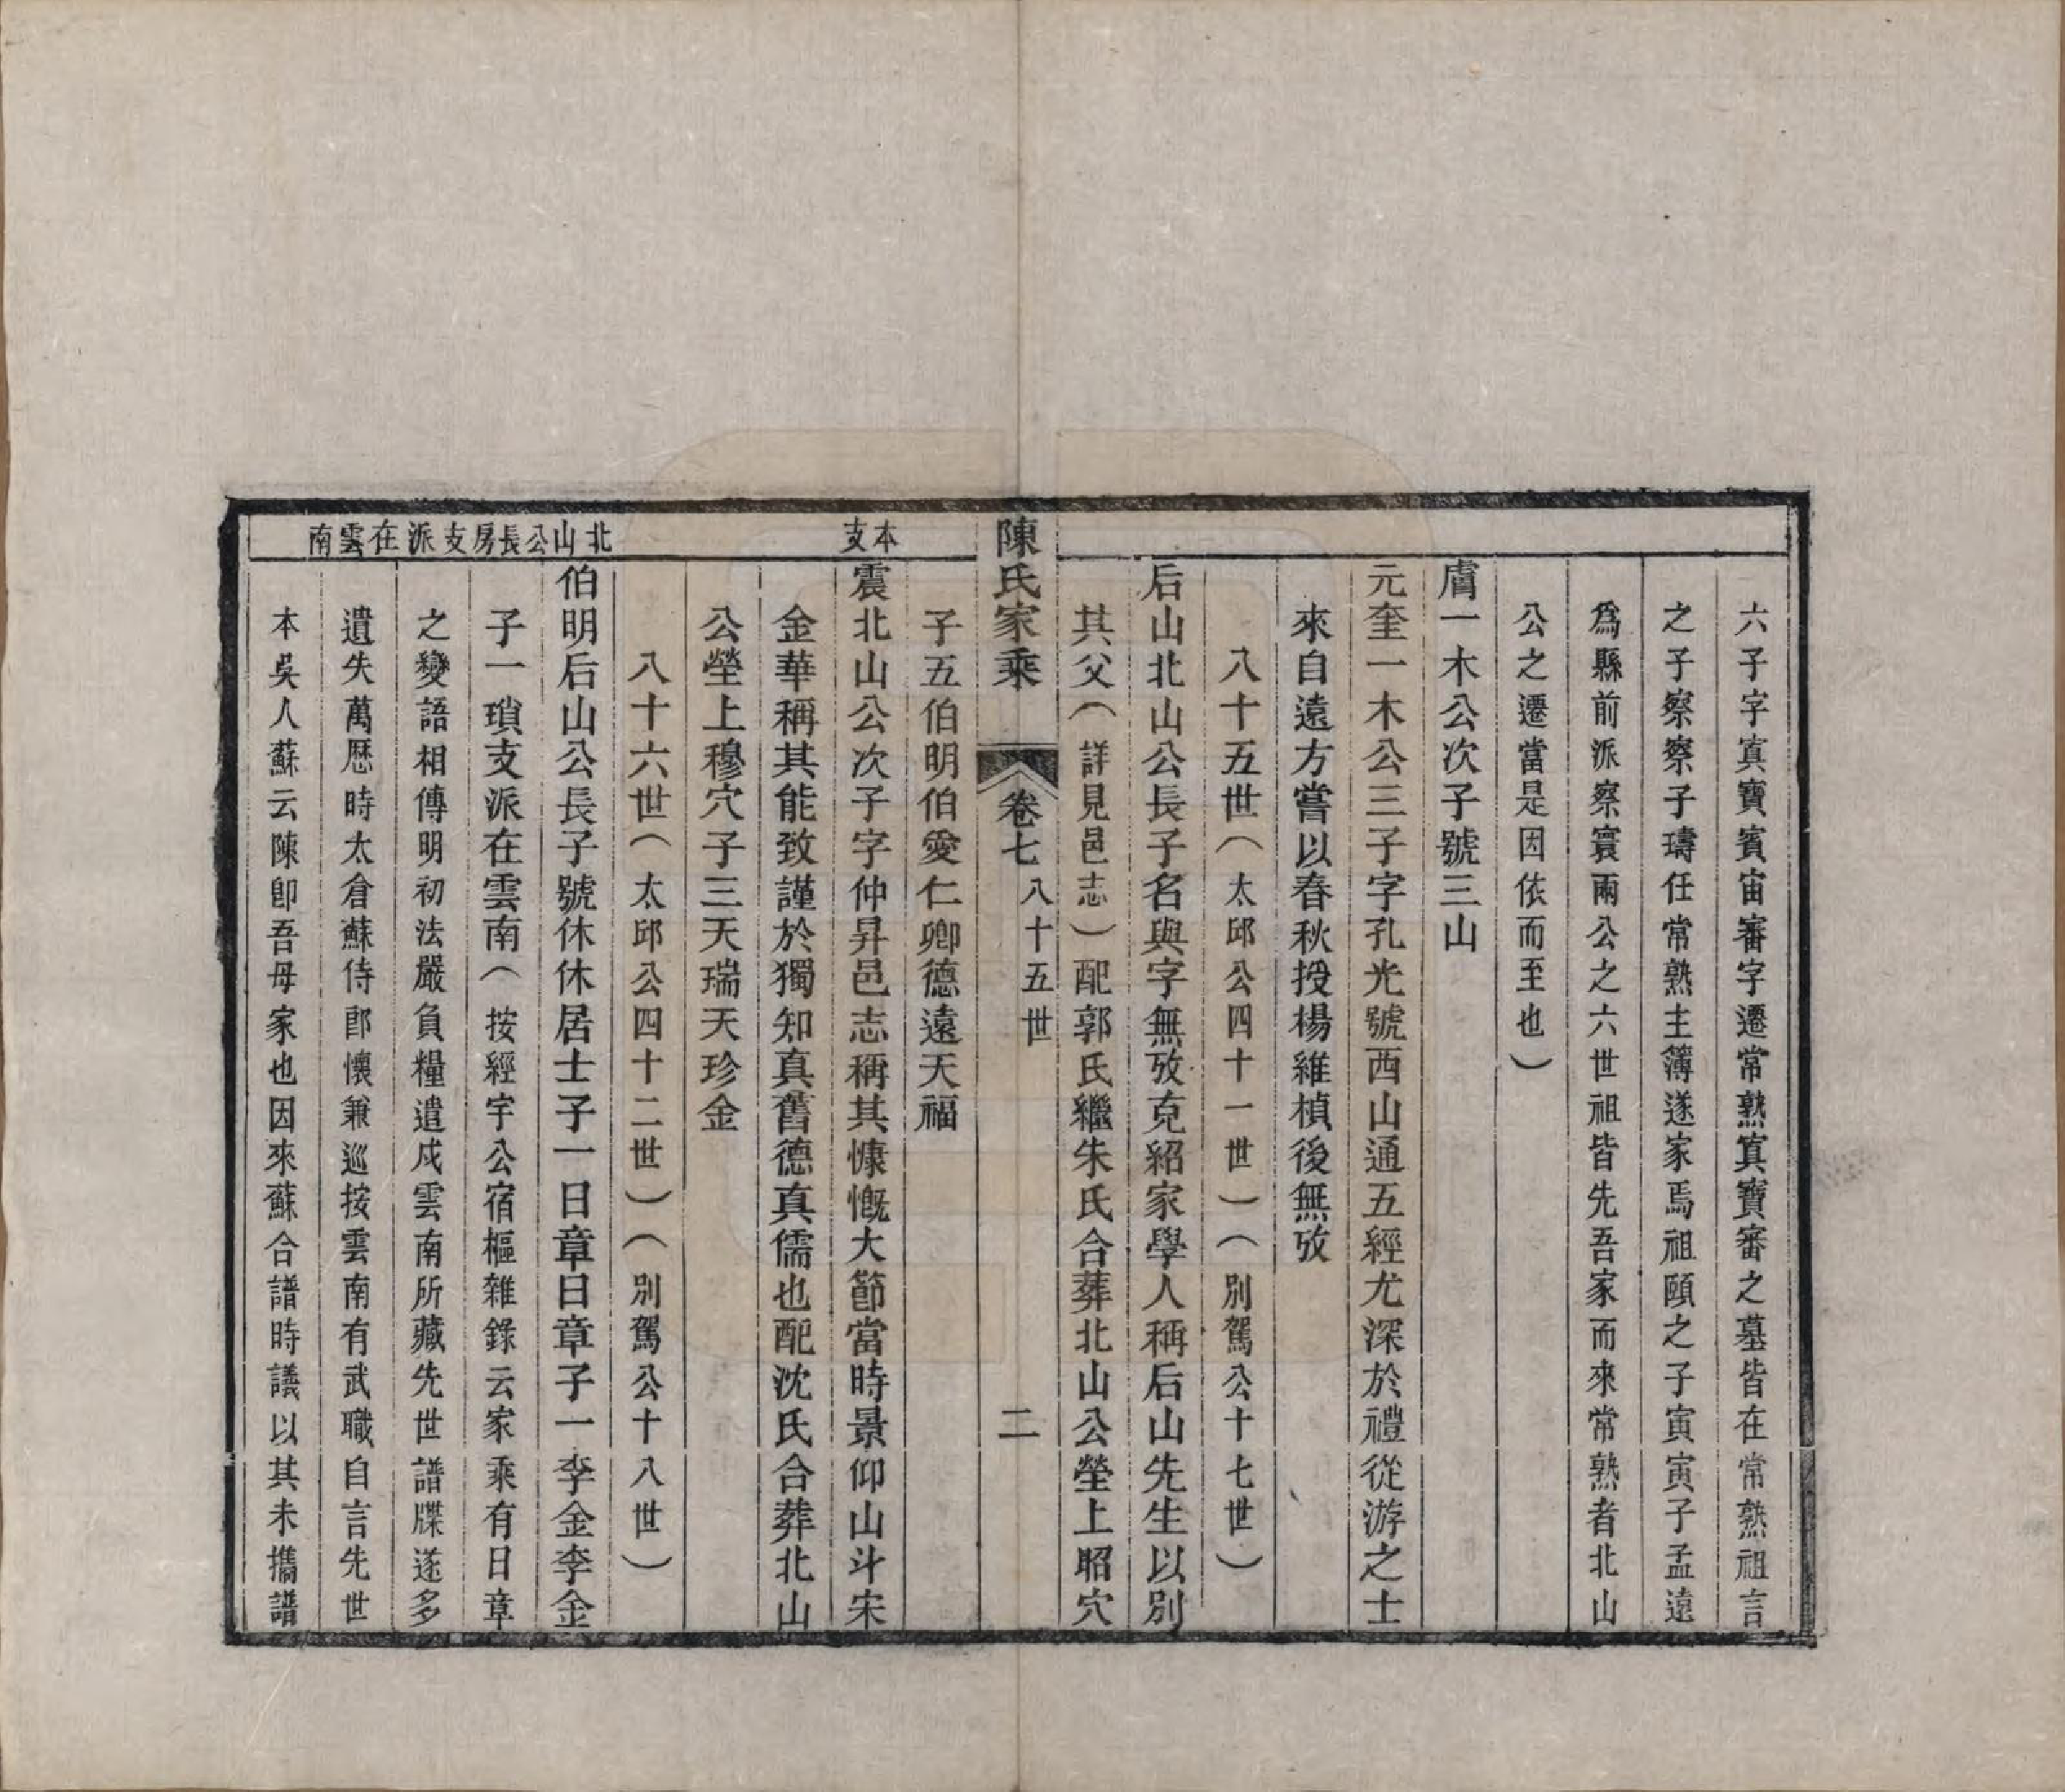 六子字寘寶賓宙審字遷常熟寘寶審之墓皆在常熟祖言
之子察察子璹任常熟主簿遂家焉祖頤之子寅寅子孟遠
爲縣前派察寰兩公之六世祖皆先吾家而來常熟者北山
公之遷當是因依而至也）
膺一木公次子號三山
元奎一木公三子字孔光號西山通五經尤深於禮從游之士
來自遠方嘗以春秋授楊維楨後無攷
八十五世（太邱公四十一世）（別駕公十七世）
后山北山公長子名與字無攷克紹家學人稱后山先生以別
其父（詳見邑志）配郭氏繼朱氏合葬北山公塋上昭穴
陳氏家乘　卷七　八十五世　二
子五伯明伯愛仁卿德遠天福
本支
震北山公次子字仲昇邑志稱其慷慨大節當時景仰山斗宋
金華稱其能致謹於獨知真舊德真儒也配沈氏合葬北山
公塋上穆穴子三天瑞天珍金
八十六世（太邱公四十二世）（別駕公十八世）
北山公長房支派在雲南
伯明后山公長子號休休居士子一日章日章子一李金李金
子一瑣支派在雲南（按經宇公宿樞雜錄云家乘有日章
之變語相傳明初法嚴負糧遣戍雲南所藏先世譜牒遂多
遺失萬歷時太倉蘇侍郎懷兼巡按雲南有武職自言先世
本吳人蘇云陳卽吾母家也因來蘇合譜時議以其未攜譜